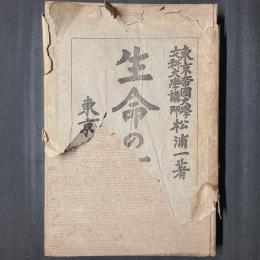 東京帝國大學
文科大學講師 松浦一著
生命の
東京